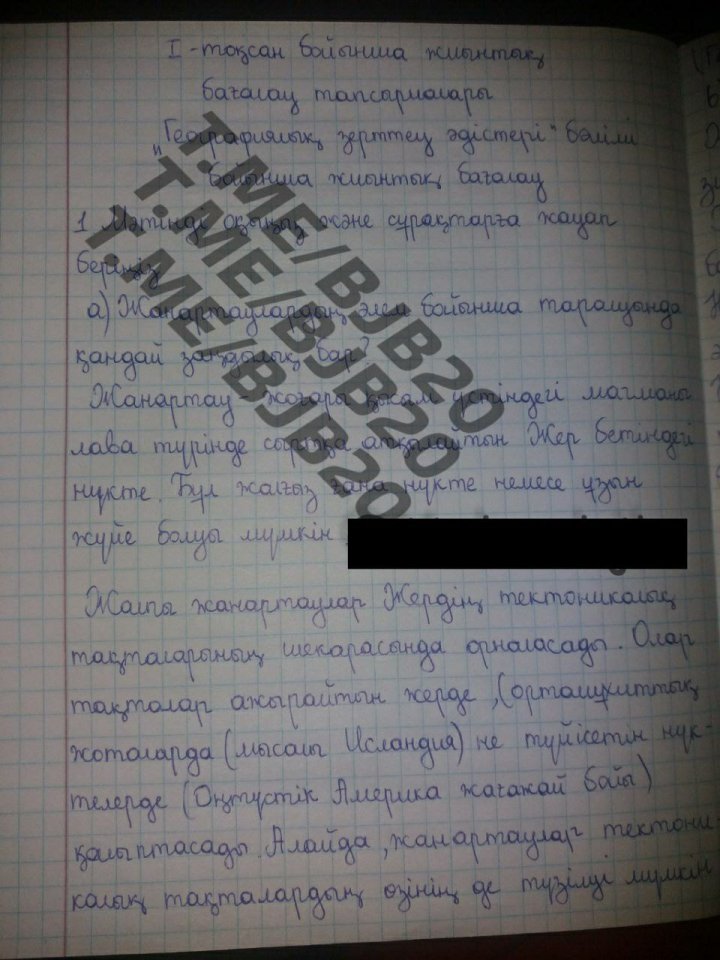 I - тоқсан бойынша жиынтық
бағалау тапсырмалары
„Географиялық зерттеу әдістері" бөлімі
бойынша жиынтық бағалау
1 Мәтінді оқыңыз және сұрақтарға жауап
беріңіз
а) Жанартаулардың әлем бойынша таралуында
қандай заңдылық бар?
Жанартау - жоғары қысым үстіндегі магманы
лава түрінде сыртқа атқылайтын Жер бетіндегі
нүкте. Бұл жалғыз ғана нүкте немесе ұзын
жүйе болуы мүмкін
Жалпы жанартаулар Жердің тектоникалық
тақталарының шекарасында орналасады. Олар
тақталар ажырайтын жерде, (орталұхиттық
жоталарда (мысалы Исландия) не түйісетін нүк-
телерде (Оңтүстік Америка жағажай бойы)
қалыптасады. Алайда, жанартаулар тектони-
калық тақталардың өзінің де түзілуі мүмкін
T.ME/BJB20
T.ME/BJB20
T.ME/BJB20